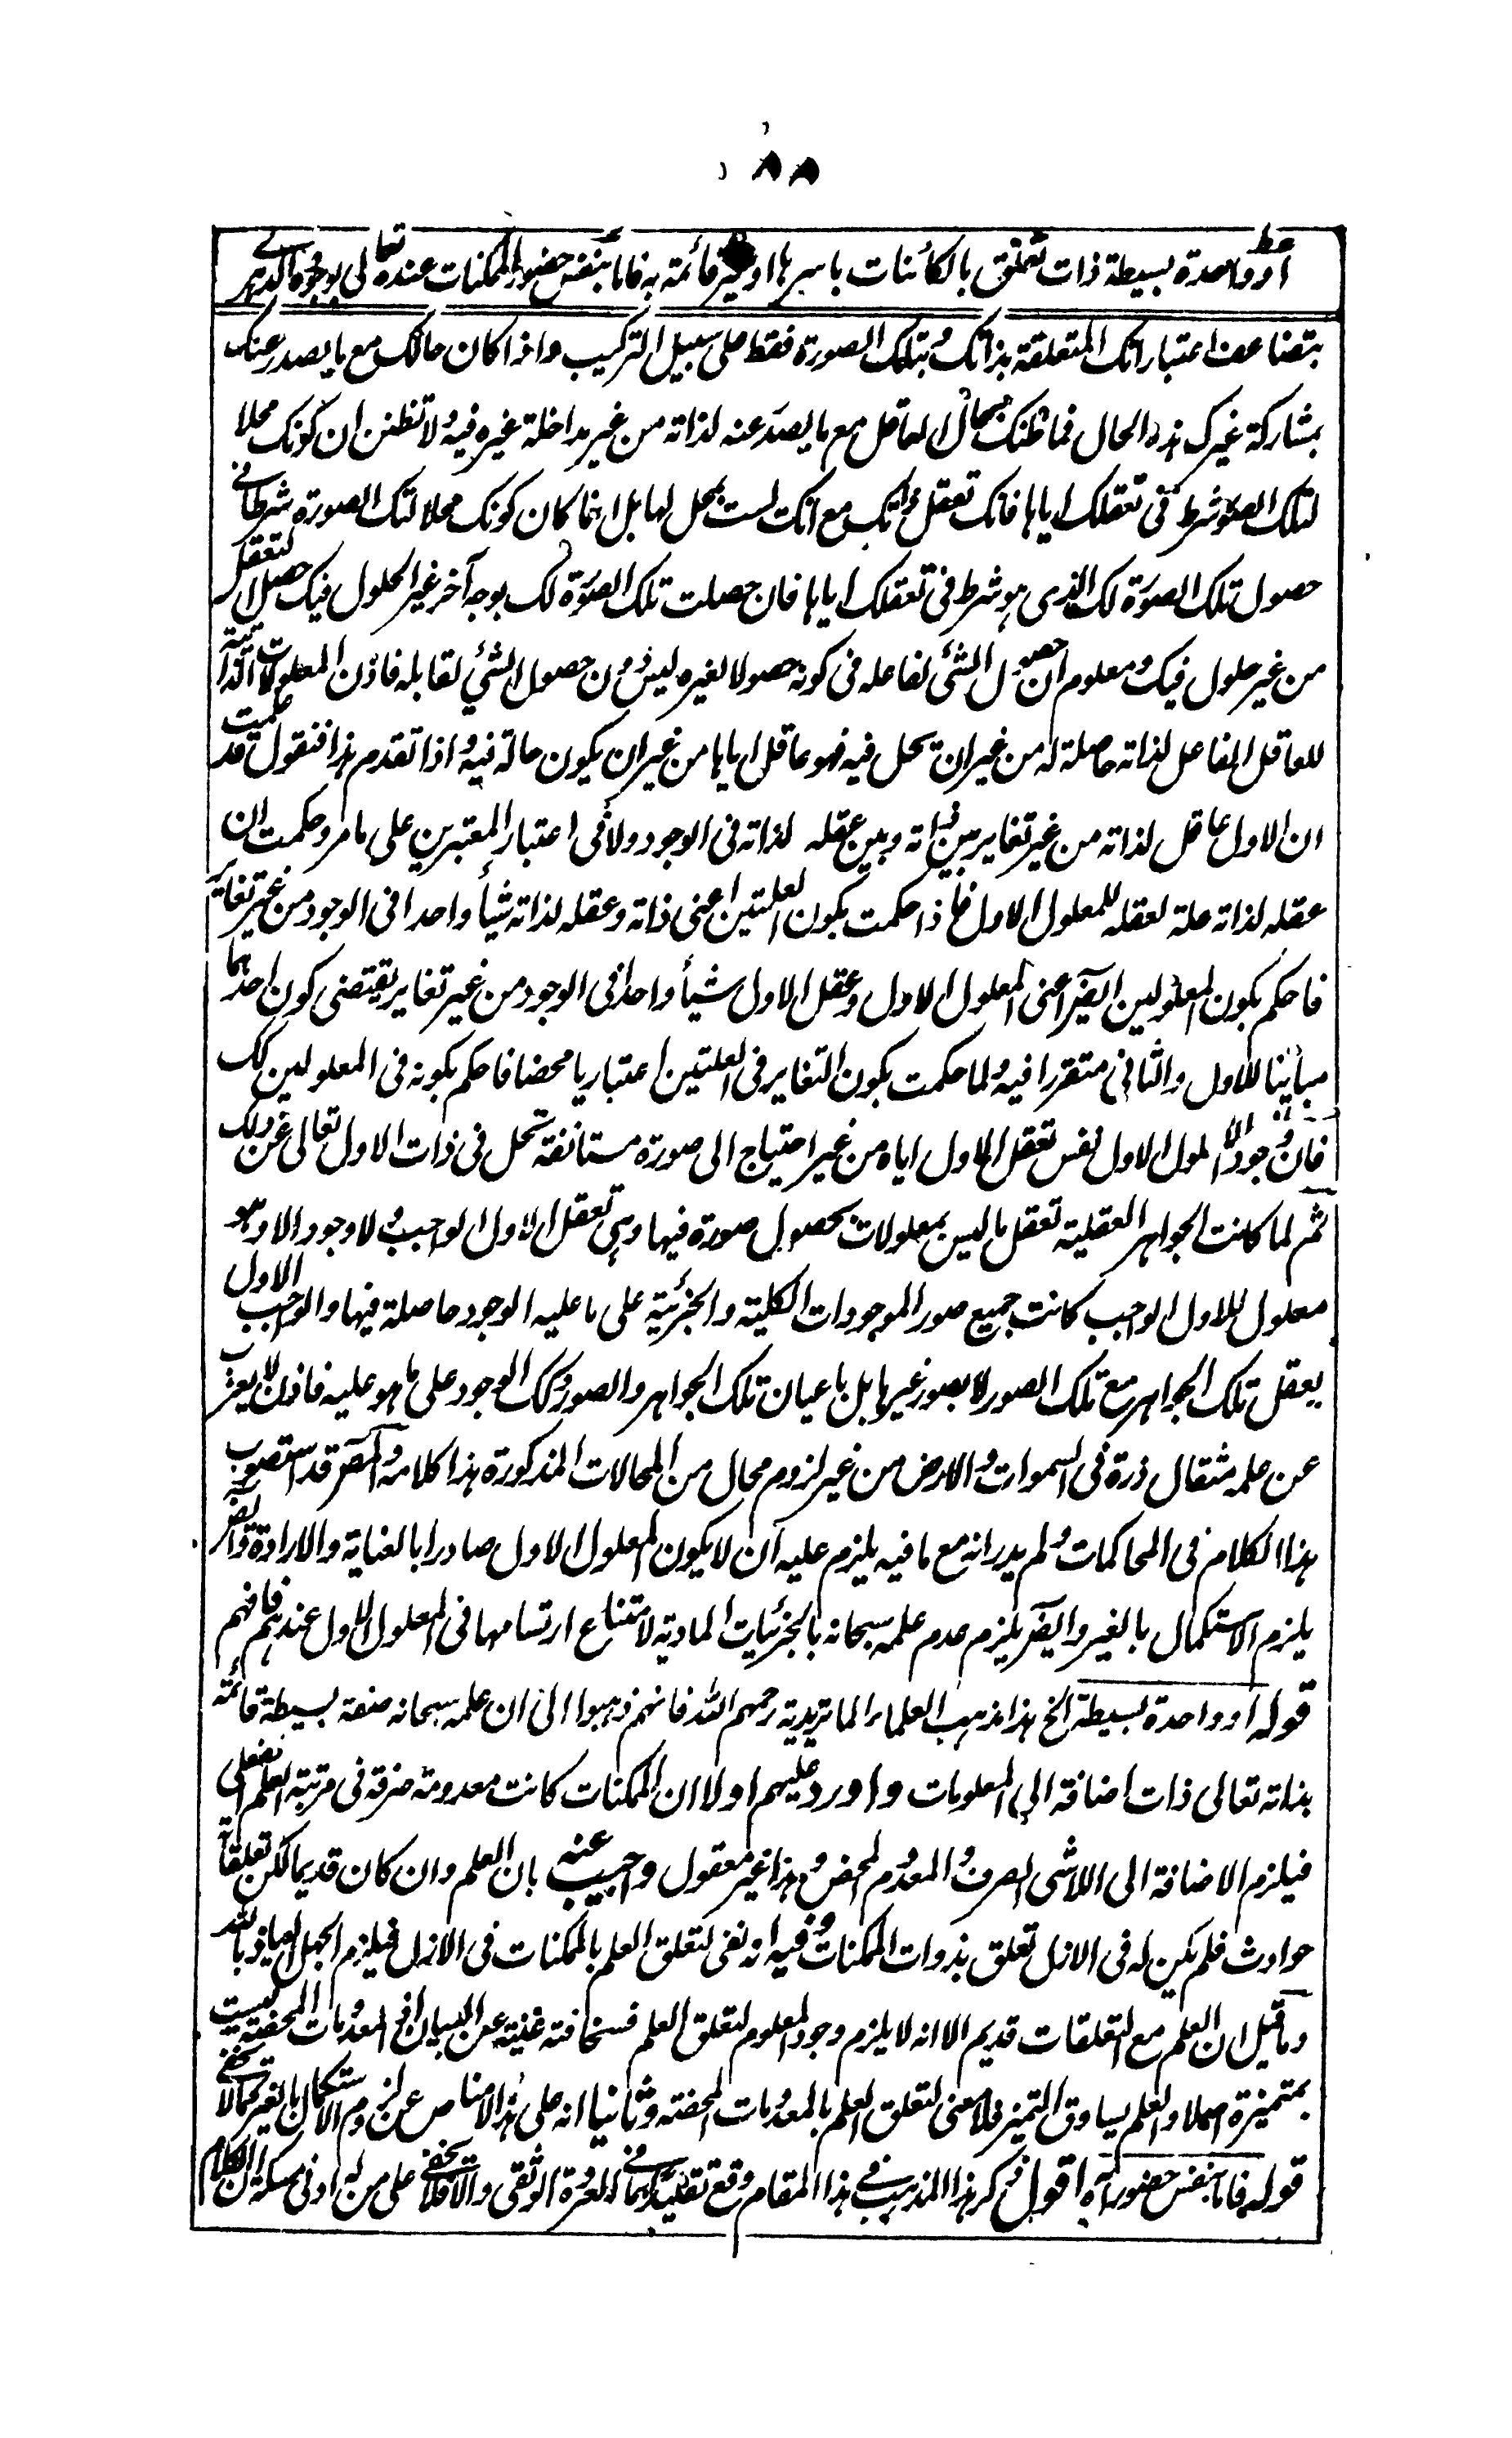 ٨٨
او واحدة بسيطة ذات تعلق بالكائنات باسرها او غير قائمة به فاما بنفس حضور الممكنات عنده تعالى بوجود الدهرى
بتضاعف اعتباراتك المتعلقة بذاتك وبتلك الصورة فقط على سبيل التركيب واذا كان حالك مع ما يصدر عنك
بمشاركة غيرك هذه الحال فما ظنك بحال العاقل مع ما يصدر عنه لذاته من غير مداخلة غيره فيه ولا تظنن ان كونك محلا
لتلك الصورة شرط فى تعقلك اياها فانك تعقل ذاتك مع انك لست بمحل لها بل انما كان كونك محلا لتلك الصورة شرطا فى
حصول تلك الصورة لك الذى هو شرط فى تعقلك اياها فان حصلت تلك الصورة لك بوجه آخر غير الحلول فيك حصل التعقل
من غير حلول فيك ومعلوم ان حصول الشئ لفاعله فى كونه حصولا لغيره ليس دون حصول الشئ لقابله فاذن المعلولات الذاتية
للعاقل الفاعل لذاته حاصلة له من غير ان تحل فيه فهو عاقل اياها من غير ان يكون حالة فيه واذا تقدم هذا فنقول قد علمت
ان الاول عاقل لذاته من غير تغاير بين ذاته وبين عقله لذاته فى الوجود ولا فى اعتبار المعتبرين على ما مر وحكمت ان
عقله لذاته علة لعقله للمعلول الاول فاذا حكمت بكون العلتين اعنى ذاته وعقله لذاته شيأ واحدا فى الوجود من غير تغاير
فاحكم بكون المعلولين ايضا اعنى المعلول الاول وعقل الاول شيأ واحدا فى الوجود من غير تغاير يقتضى كون احدهما
مبائنا للاول والثانى متقررا فيه ولما حكمت بكون التغاير فى العلتين اعتباريا محضا فاحكم بكونه فى المعلولين كك
فاذن وجود المعلول الاول نفس تعقل الاول اياه من غير احتياج الى صورة مستانفة تحل فى ذات الاول تعالى عن ذلك
ثم لما كانت الجواهر العقلية تعقل ما ليس بمعلولات بحصول صورة فيها وهى تعقل الاول الواجب ولا وجود الا وهو
معلول للاول الواجب كانت جميع صور الموجودات الكلية والجزئية على ما عليه الوجود حاصلة فيها والواجب الاول
يعقل تلك الجواهر مع تلك الصور لا بصور غيرها بل باعيان تلك الجواهر والصور وكك الوجود على ما هو عليه فاذن لا يعزب
عن علمه مثقال ذرة فى السموات والارض من غير لزوم محال من المحالات المذكورة هذا كلامه والمص قد استصوب
هذا الكلام فى المحاكمات ولم يدر انه مع ما فيه يلزم عليه ان لا يكون المعلول الاول صادرا بالعناية والارادة وايضا
يلزم الاستكمال بالغير وايضا يلزم عدم علمه سبحانه بالجزئيات المادية لامتناع ارتسامها فى المعلول الاول عندهم فافهم
قوله او واحدة بسيطة الخ هذا مذهب العلماء الماتريدية رحمهم الله فانهم ذهبوا الى ان علمه سبحانه صفة بسيطة قائمة
بذاته تعالى ذات اضافة الى المعلومات واورد عليهم اولا ان الممكنات كانت معدومة صرفة فى مرتبة العلم الفعلى
فيلزم الاضافة الى اللاشى الصرف والمعدوم المحض وهذا غير معقول واجيب عنه بان العلم وان كان قديما لكن تعلقاته
حوادث فلم يكن له فى الازل تعلق بذوات الممكنات وفيه انه نفى لتعلق العلم بالممكنات فى الازل فيلزم الجهل العياذ بالله
وما قيل ان العلم مع التعلقات قديم الا انه لا يلزم وجود المعلوم لتعلق العلم فسخافته غنية عن البيان اذ المعدومات المحضة ليست
بمتميزة اصلا والعلم يساوق التميز فلا معنى لتعلق العلم بالمعدومات المحضة وثانيا انه على هذا لا مناص عن لزوم الاستكمال بالغير كما لا يخفى
قوله فاما بنفس حضور آه اقول ذكر هذا المذهب فى هذا المقام وقع تقليدا لما فى العروة الوثقى والا فلا يخفى على من له ادنى مسكة ان الكلام